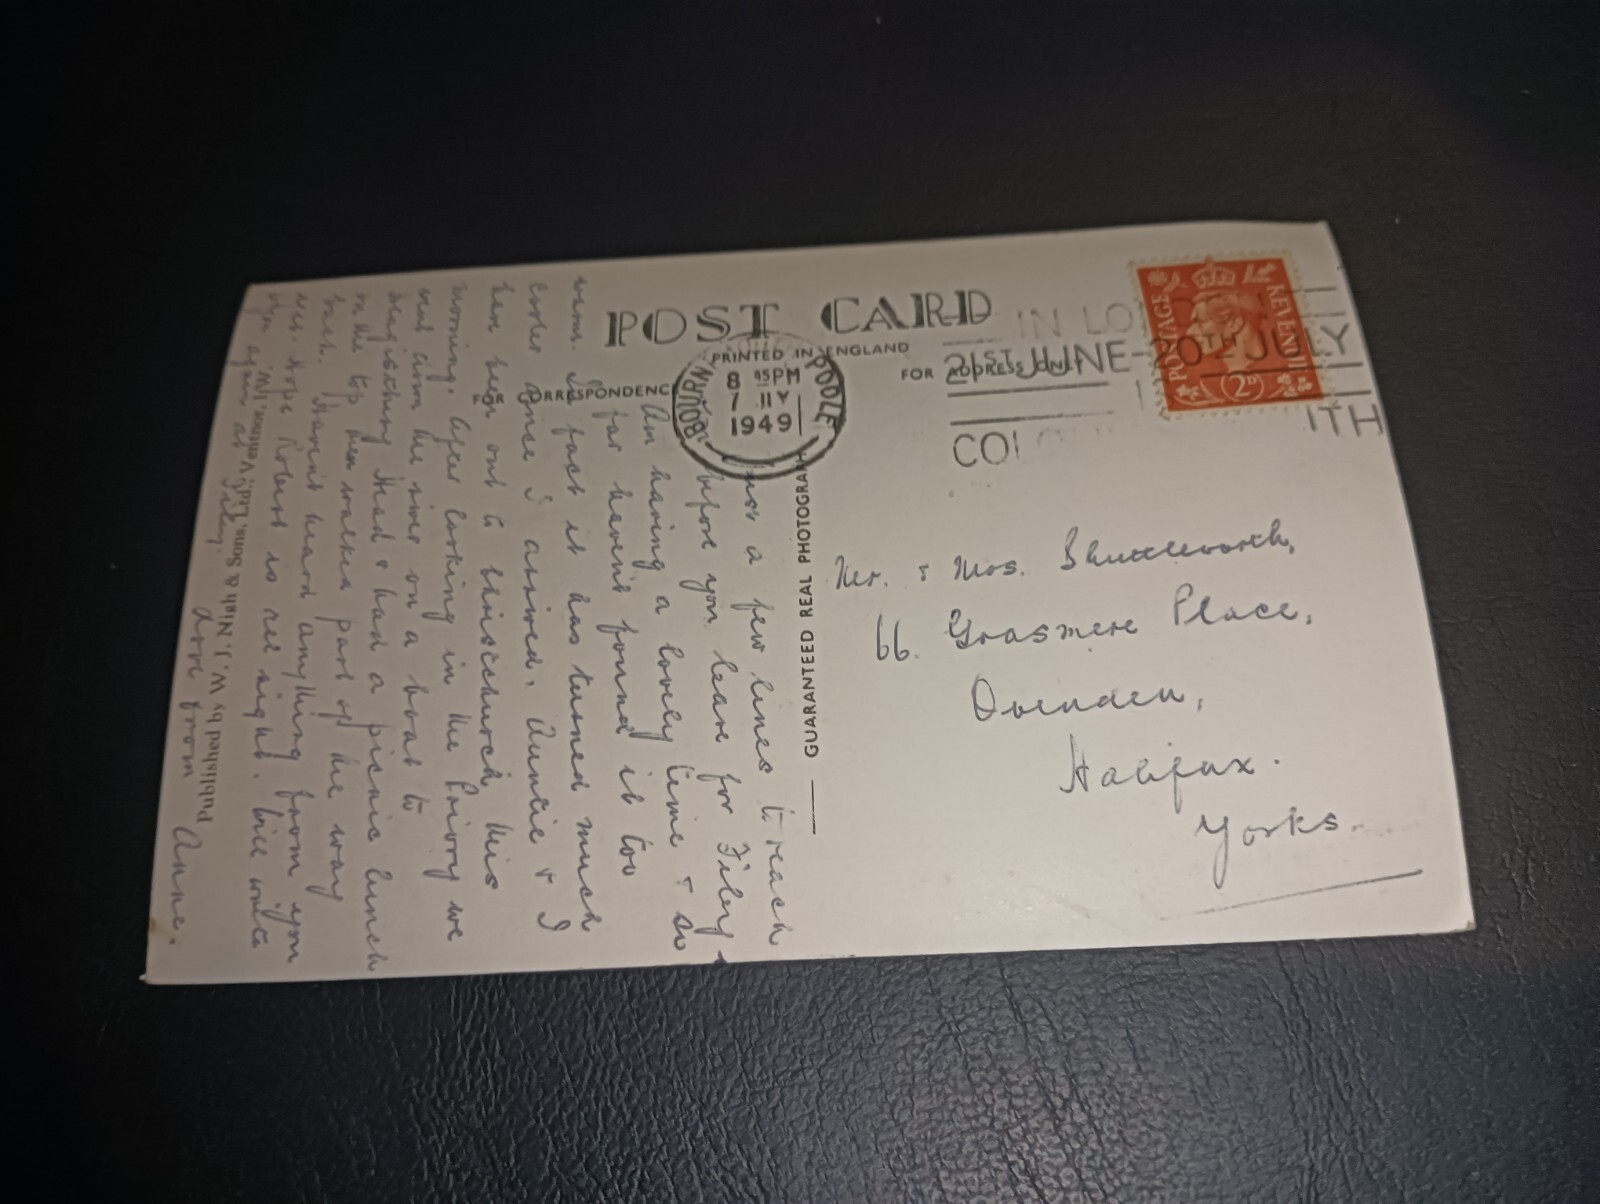 POST CARD
PRINTED IN ENGLAND
FOR CORRESPONDENCE
FOR ADDRESS ONLY
BOURNEMOUTH POOLE
8 45PM
7 JLY
1949
IN LO
21ST JUNE-20TH JULY
COL ITH
POSTAGE REVENUE
2D
GUARANTEED REAL PHOTOGRAPH
Mr. & Mrs. Shuttleworth,
66. Grasmere Place,
Ovenden,
Halifax.
Yorks.
Just a few lines to reach
before you leave for Filey.
Am having a lovely time & so
far haven't found it too
warm. In fact it has turned much
cooler since I arrived. Auntie & I
have been out to Christchurch this
morning. After looking in the Priory we
went down the river on a boat to
Hengistbury Head & had a picnic lunch
on the top then walked part of the way
back. Haven't heard anything from you
yet. Hope Robert is all right. Will write
you again at Filey.
Love from
Anne.
Published by W. J. Nigh & Sons, Ltd., Ventnor, I.W.